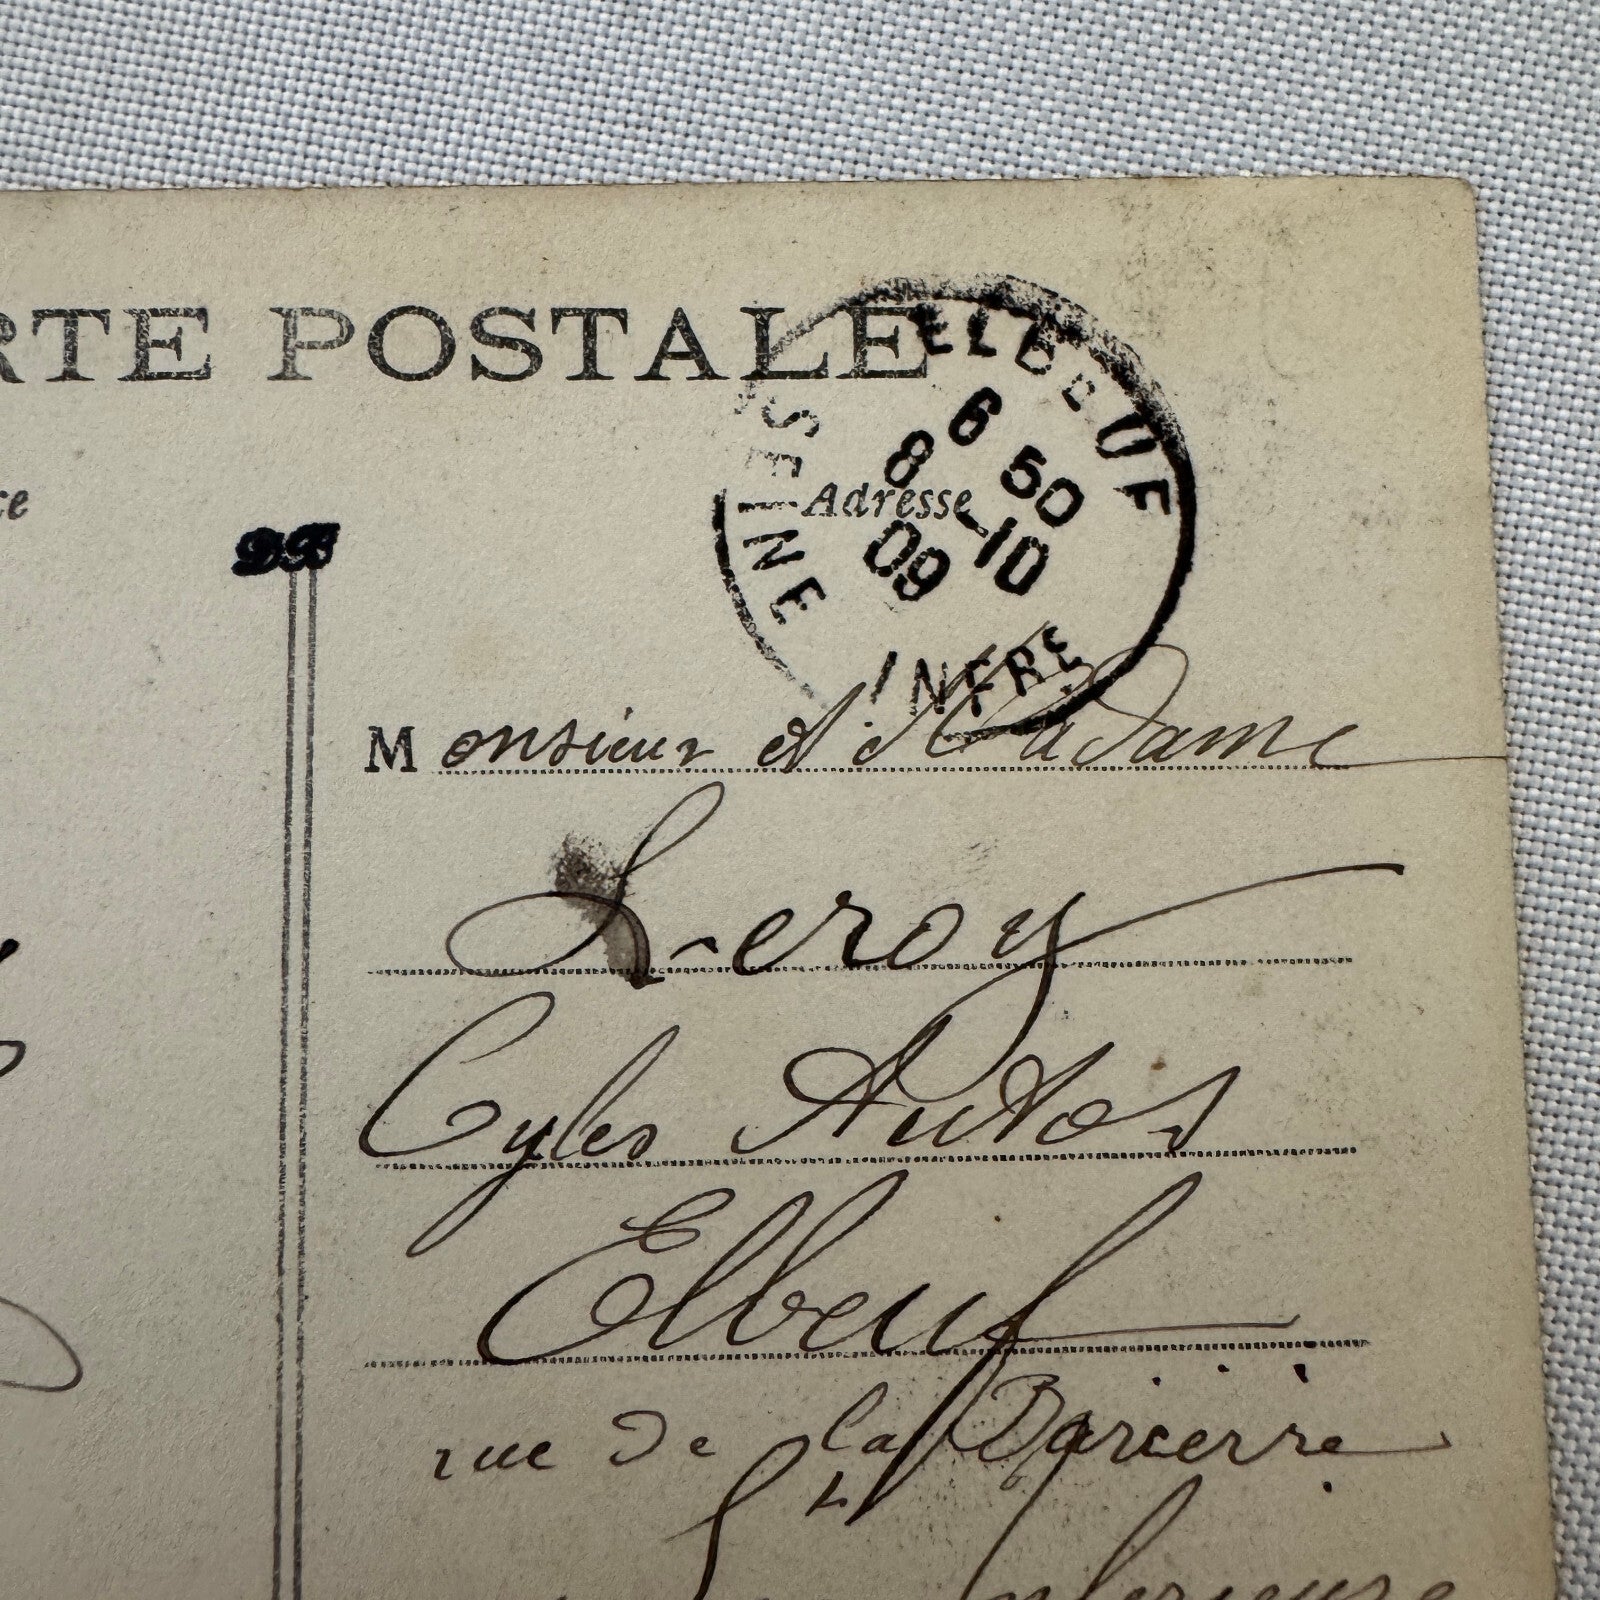 RTE POSTALE
ELBEUF
SEINE INFRE
6 50
8 -10
09
Adresse
DB
Monsieur et Madame
Leroy
Cyles Autos
Elbeuf
rue de la